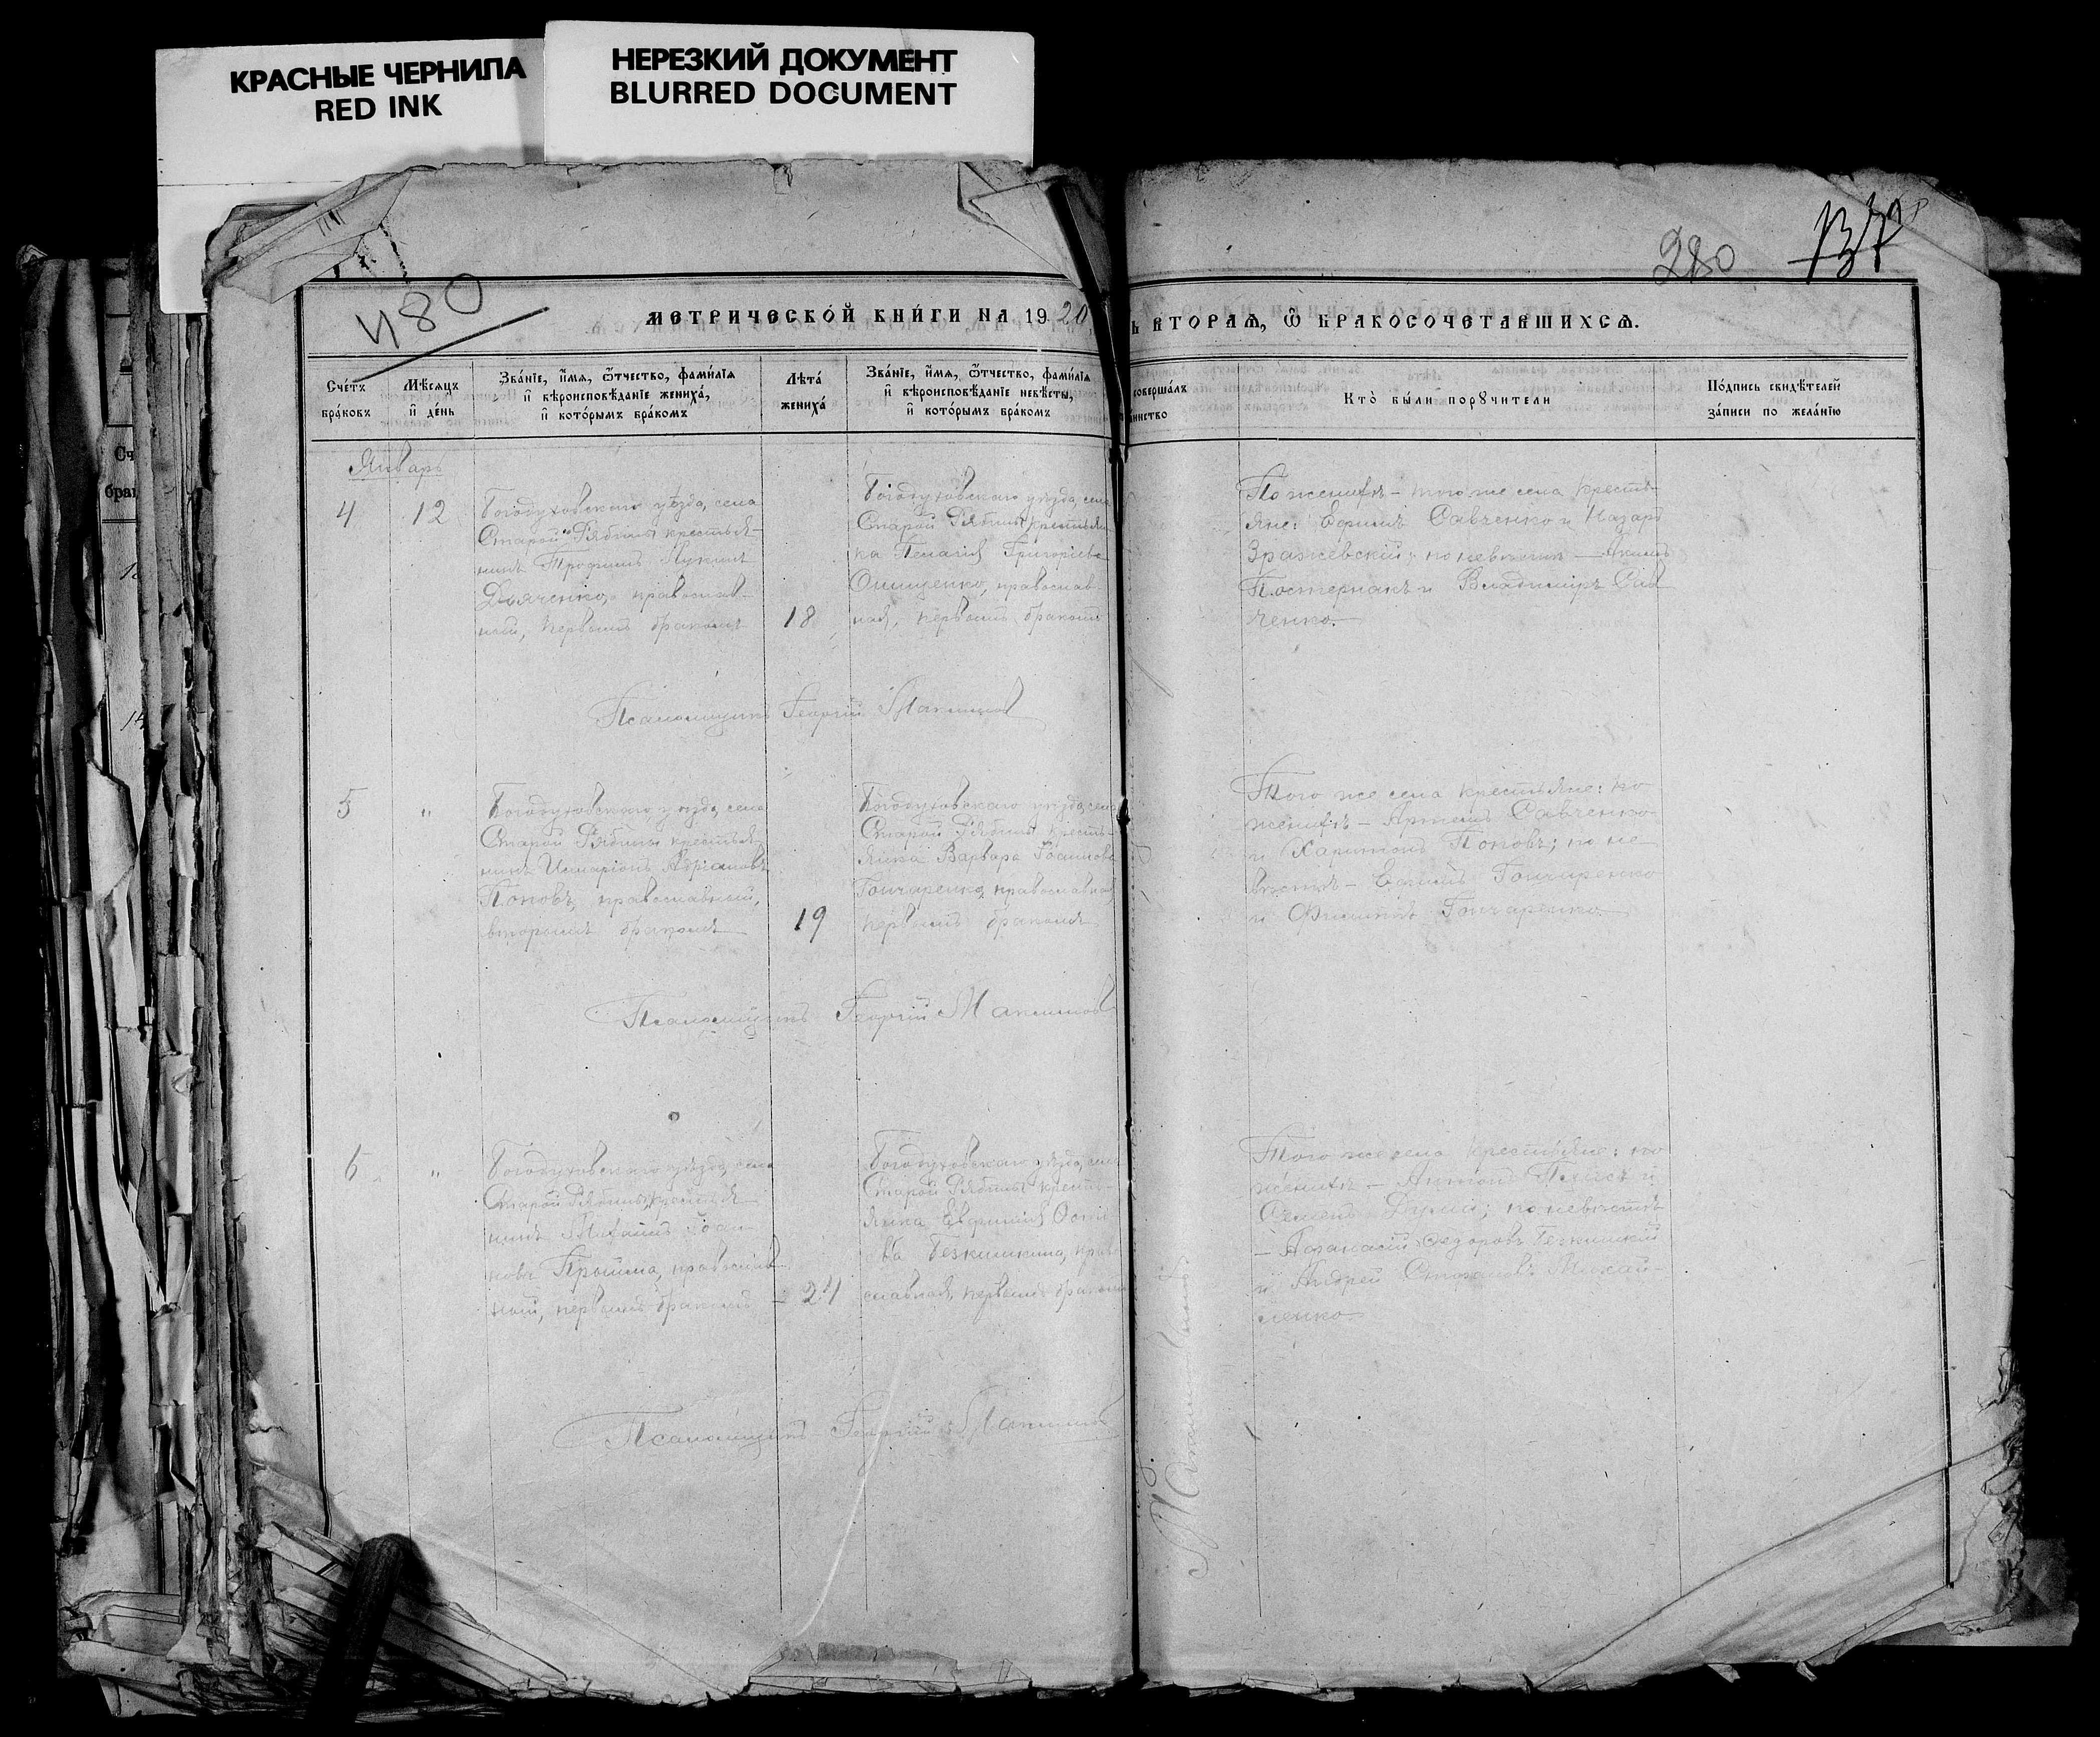 КРАСНЫЕ ЧЕРНИЛА
RED INK
НЕРЕЗКИЙ ДОКУМЕНТ
BLURRED DOCUMENT
480
280
137
МЕТРИЧЕСКОЙ КНИГИ НА 1920
ВТОРАЯ, Ѿ БРАКОСОЧЕТАВШИХСЯ.
Счетъ браковъ
Мѣсяцъ и день
Званіе, имя, ѿтчество, фамилія и вѣроисповѣданіе жениха, и которымъ бракомъ
Лѣта жениха
Званіе, имя, ѿтчество, фамилія и вѣроисповѣданіе невѣсты, и которымъ бракомъ
совершалъ
Кто были поручители
Подпись свидѣтелей записи по желанію
Январь
4
12
Богодуховскаго уѣзда, села
Старой Рябины крестья-
нинъ Трофимъ Лукинъ
Дьяченко, православ-
ный, первымъ бракомъ
18
Богодуховскаго уѣзда, села
Старой Рябины крестьян
ка Пелагія Григорьева
Онищенко, православ-
ная, первымъ бракомъ
По женихѣ – того же села кресть-
яне: Ефимъ Савченко и Назаръ
Зражевскій; по невѣстѣ – Акимъ
Постернакъ и Владиміръ Сав
ченко.
Псаломщикъ Георгій Максимовъ
5
"
Богодуховскаго уѣзда, села
Старой Рябины крестья-
нинъ Илларіонъ Адріановъ
Поповъ, православный,
вторымъ бракомъ
19
Богодуховскаго уѣзда, села
Старой Рябины кресть-
янка Варвара Іоаннова
Гончаренко, православная
первымъ бракомъ
Того же села крестьяне: по
женихѣ – Артемъ Савченко
и Харитонъ Поповъ; по не-
вѣстѣ – Ефимъ Гончаренко
и Филиппъ Гончаренко.
Псаломщикъ Георгій Максимовъ
6
"
Богодуховскаго уѣзда, села
Старой Рябины, крестья-
нинъ Михаилъ Іоан-
новъ, православ-
ный, первымъ бракомъ
24
Богодуховскаго уѣзда, села
Старой Рябины кресть-
янка Евфимія
православная, первымъ бракомъ
Того же села крестьяне: по
женихѣ – Антонъ и
Семенъ; по невѣстѣ
– Афанасій Федоровъ
и Андрей Стефановъ Михай-
ленко.
Псаломщикъ Георгій Максимовъ